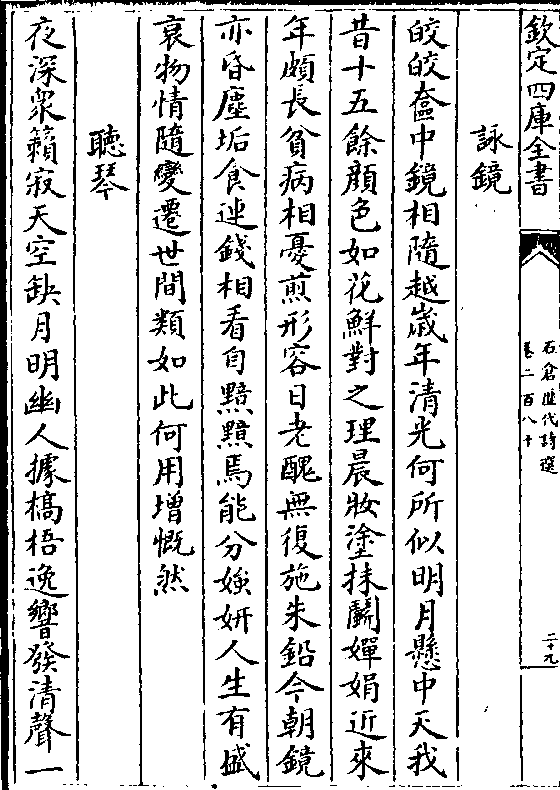 欽定四庫全書
石倉歷代詩選
卷二百八十
二十九
詠鏡
皎皎奩中鏡相隨越歲年清光何所似明月懸中天我
昔十五餘顏色如花鮮對之理晨妝塗抹鬬嬋娟近來
年頗長貧病相憂煎形容日老醜無復施朱鉛今朝鏡
亦昏塵垢食連錢相看自黯黯焉能分媸妍人生有盛
衰物情隨變遷世間類如此何用增慨然
聽琴
夜深衆籟寂天空缺月明幽人據槁梧逸響發清聲一